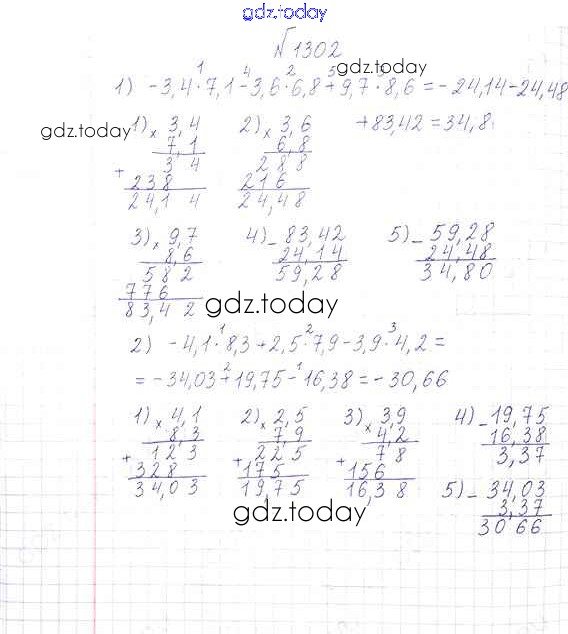 gdz.today
№1302
gdz.today
1) -3,4·7,1-3,6·6,8+9,7·8,6=-24,14-24,48
+83,42=34,8
gdz.today
1) × 3,4
7,1
+ 3 4
238
24,1 4
2) × 3,6
6,8
288
216
24,48
3) × 9,7
8,6
582
776
83,42
4) - 83,42
24,14
59,28
5) - 59,28
24,48
34,80
gdz.today
2) -4,1·8,3+2,5·7,9-3,9·4,2=
=-34,03+19,75-16,38=-30,66
1) × 4,1
8,3
+ 123
328
34,03
2) × 2,5
7,9
+ 225
175
19,75
3) × 3,9
4,2
+ 78
156
16,38
4) - 19,75
16,38
3,37
5) - 34,03
3,37
30 66
gdz.today